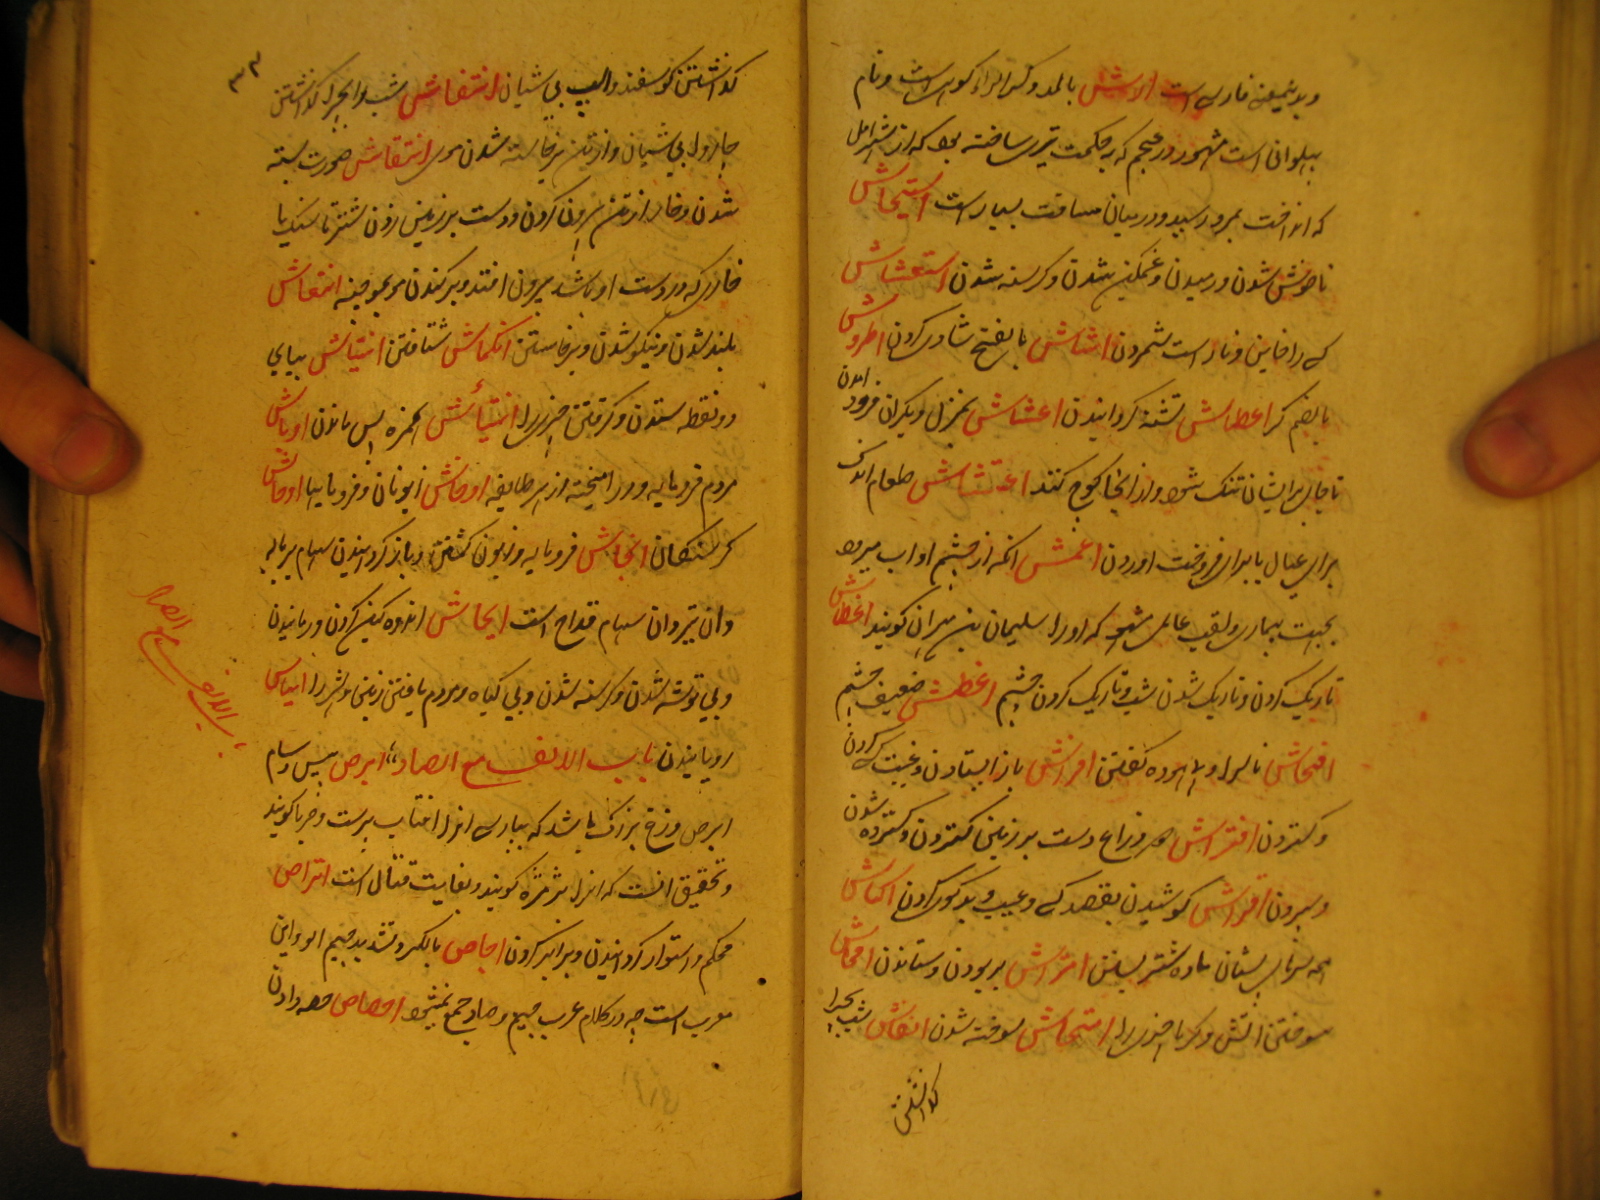 و بدینمعنی فارسی است الارش بالمد و کسر الراء کوهی است و نام
پهلوانی است مشهور در عجم که به حکمت تیری ساخته بود که از شهر امل
که انداخت بمرو رسید و در میان مسافت بسیار است استیحاش
ناخوش شدن و رمیدن و غمکین شدن و کرسنه شدن استغشاش
کسی را خاین و ناراست شمردن اشاش بالفتح شادی کردن اطروش
بالضم کر اعطاش تشنه کردانیدن اعشاش بمنزل دیکران فرود امدن
تا جای برایشان تنک شود و از انجا کوچ کنند اعتشاش طعام اندک
برای عیال یا برای فروخت اوردن اعمش انکه از چشم او اب میرود
بجهت بیماری و لقب عالمی مشهور که او را سلیمان بن مهران کویند اغطاش
تاریک کردن و تاریک شدن شب و تاریک کردن چشم اغطش ضعیف چشم
افحاش ناسزا و بیهوده کفتن افراش باز ایستادن و غیبت کسی کردن
و کستردن افتراش هر دو ذراع دست بر زمین کستردن و کسترده شدن
و سپردن اقتراش کوشیدن بقصد کسی و عیب و بدکوئی کردن اکماش
همه سرهای پستان ماده شتر بستن امتراش بربودن و ستاندن امحاش
سوختن اتش و کرما چیزی را امتحاش سوخته شدن انفاش شب بچرا
کذاشتن
۳۳
کذاشتن کوسفند و اسپ بی شبان انتفاش شب بچرا کذاشتن
چاروا بی شبان و از تن برخاسته شدن موی انتقاش صورت بسته
شدن و خار از تن بیرون کردن و دست بر زمین زدن شتر تا سنک یا
خاری که در دست او باشد بیرون افتد و برکندن موی بموچینه انتعاش
بلند شدن و نیکو شدن و برخاستن انکماش شتافتن انتیاش بیای
دو نقطه ستدن و کرفتن چیزی را انتیأش بهمزه پس ماندن اوباش
مردم فرومایه و در امیخته از هر طایفه اوخاش زبونان و فرومایها اوحاش
کرسنکان ایخاش فرومایه و زبون کشتن و باز کردانیدن سهام برباله
و ان تیردان سهام قداح است ایحاش اندوهکین کردن و رمانیدن
و بی توشه شدن و کرسنه شدن و بی کیاه و مردم یافتن زمین و شهر را ایباش
رویانیدن باب الالف مع الصاد ابرص پیس و سام
ابرص وزغ بزرک باشد که بپارسی انرا افتاب پرست و حربا کویند
و تحقیق انست که انرا مژمژه کویند و بغایت قتال است اتراص
محکم و استوار کردانیدن و برابر کردن اجاص بالکسر و تشدید جیم الو و این
معرب است چه در کلام عرب جیم و صاد جمع نمیشود احصاص حصه دادن
باب الالف مع الصاد